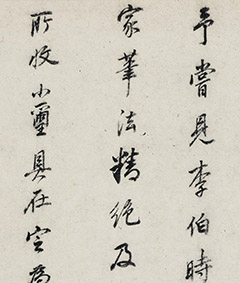 予嘗見李伯時
家筆法精絕及
所收小璽具在空為